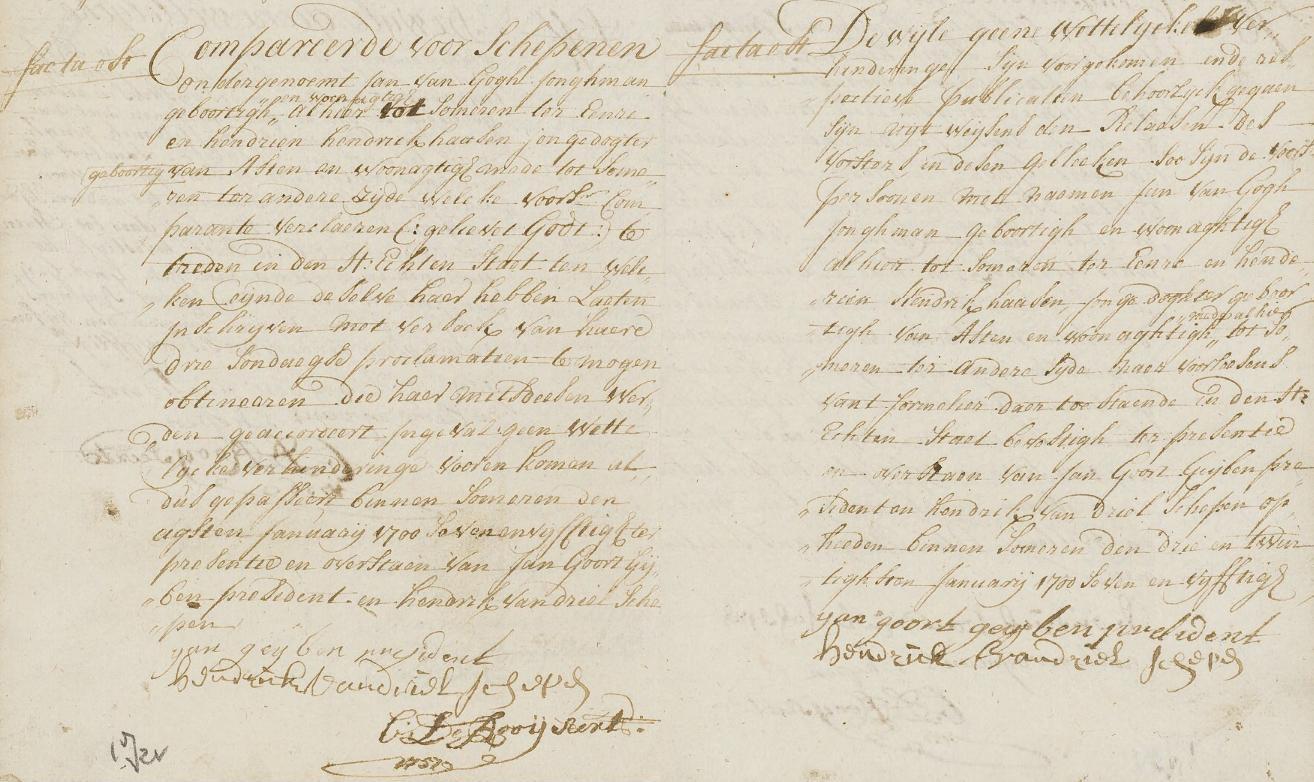 facta est
Compareerde voor Schepenen
ondergenoemt Jan van Gogh Jonghman
en woonagtig
geboortigh alhier tot Someren ter Eenre
en hendrien hendrick haasen jongedogter
geboortig
van Asten en woonagtigh mede tot Some„
„ren ter andere zyde welcke voors: Com
parante verclaeren (: gelievet Godt :) te
treden in den H: Echten Staat ten wel„
„ken Eynde deselve haer hebben Laeten
Inschryven met versoek van haere
drie Sondaegse proclamatien te mogen
obtineeren die haer mits deesen wer„
„den geaccordeert Ingeval geen Wette
lycke verhinderinge vooren koman al
dus gepasseert binnen Someren den
agsten January 1700 Seven en vyfftigh ter
presentie en overstaen van Jan Goort Gij„
„ben president en hendrik van driel Sche
„pen
jan geyben president
hendrick vandriel schepen
De Rooij Secrt:
1757
facta est
De wyle geene Wettelycke ver„
hinderinge Syn voorgekomen ende res
pective publicatien behoorlyck gegaen
Syn uyt weysens den Relaasen des
vorsters in desen gebleeken Soo Syn de voors:
persoonen met naemen Jan van Gogh
Jonghman geboortigh en woonaghtigh
alhier tot Someren ter Eenre en hende„
„rien Hendrik haasen, Jonge dogter geboor
mede alhier
tigh van Asten en woonaghtigh tot So„
„meren ter andere Syde naer voorlesens
vant formelier daer toe staende In den H:
Echten Staet bevestigh ter presentie
en overstaen van Jan Goort Geijben pre
„sident en hendrik van driel Schepen op„
„heeden binnen Someren den drie en twin
„tighsten January 1700 Seven en vyfftigh
jan goort geyben president
hendrick vandriel schepen